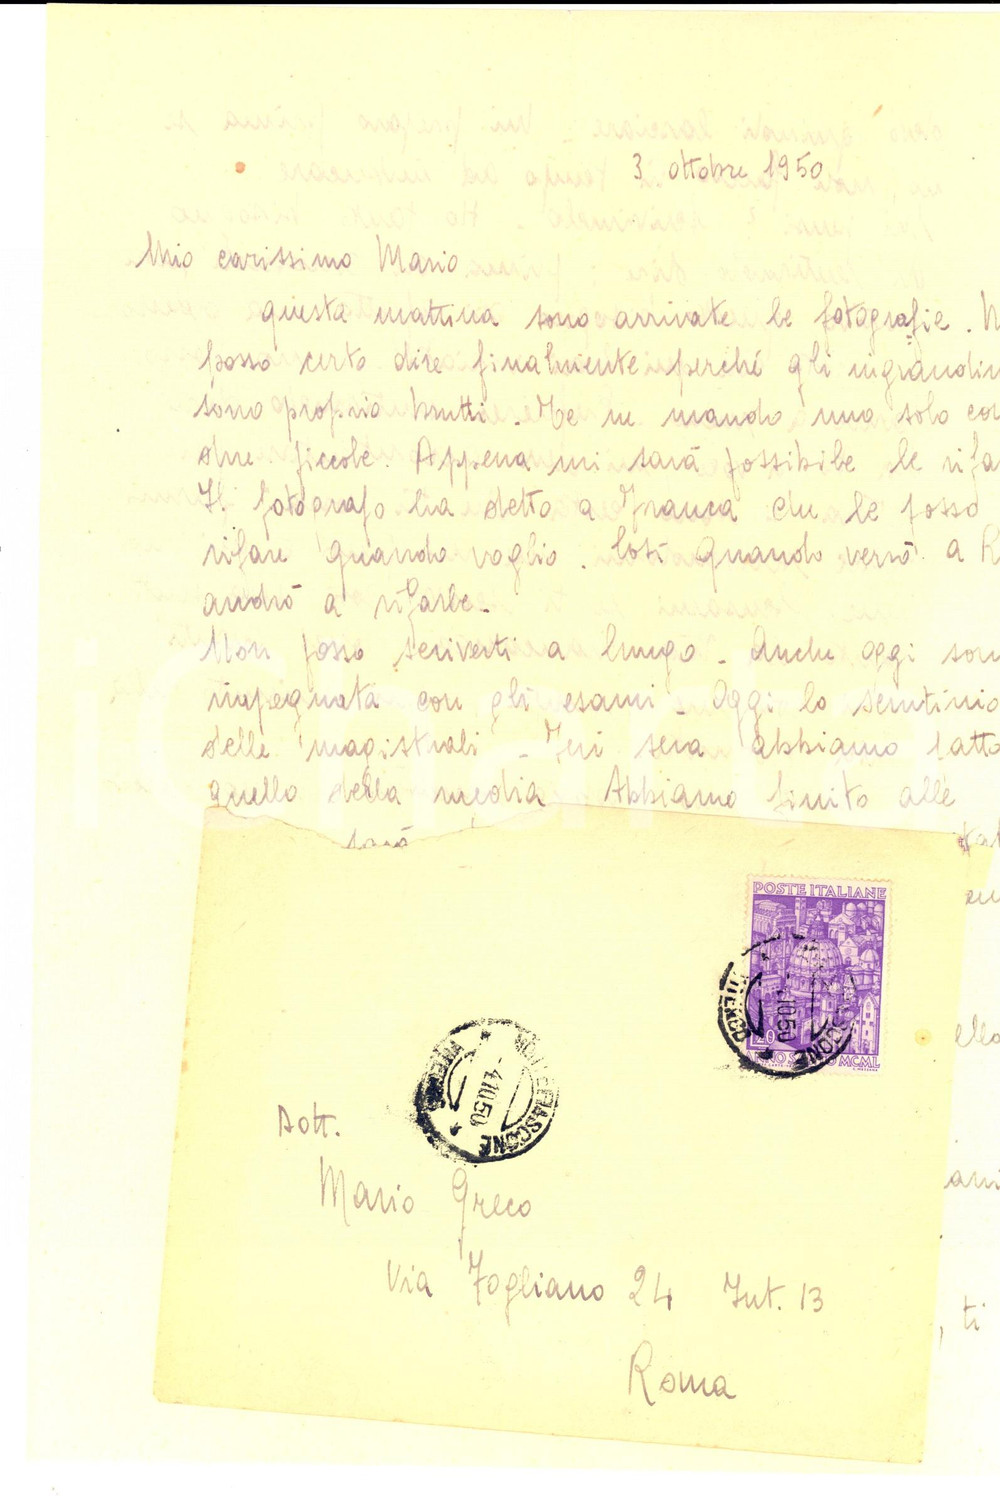 3 ottobre 1950
Mio carissimo Mario
questa mattina sono arrivate le fotografie. N
posso certo dire finalmente perché gli ingrandim
sono proprio brutti. Te ne mando uno solo con
due piccole. Appena mi sarà possibile le rifa
Il fotografo ha detto a Franca che le posso
rifare quando voglio. Così quando verrò a R
andrò a rifarle.
Non posso scriverti a lungo. Anche oggi son
impegnata con gli esami. Oggi lo scrutinio
delle magistrali. Ieri sera abbiamo fatto
quello della media. Abbiamo finito alle
sarà
ello
ani
, ti
POSTE ITALIANE
20
ANNO SANTO MCML
MONTEFIASCONE
VITERBO
4.10.50
Dott.
Mario Greco
Via Fogliano 24 Int. 13
Roma